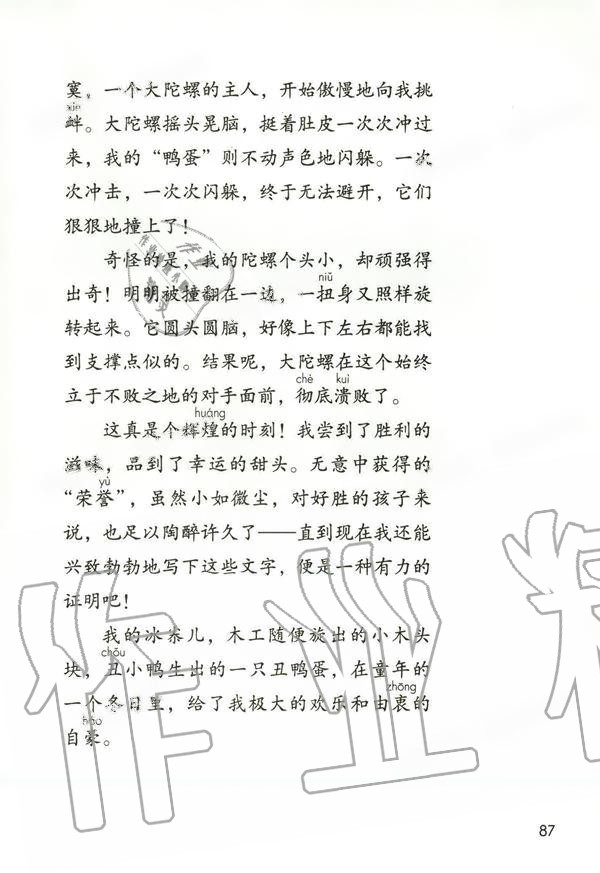 寞。一个大陀螺的主人，开始傲慢地向我挑
xìn
衅。大陀螺摇头晃脑，挺着肚皮一次次冲过
来，我的“鸭蛋”则不动声色地闪躲。一次
次冲击，一次次闪躲，终于无法避开，它们
狠狠地撞上了！
奇怪的是，我的陀螺个头小，却顽强得
niǔ
出奇！明明被撞翻在一边，一扭身又照样旋
转起来。它圆头圆脑，好像上下左右都能找
到支撑点似的。结果呢，大陀螺在这个始终
chè kuì
立于不败之地的对手面前，彻底溃败了。
huáng
这真是个辉煌的时刻！我尝到了胜利的
滋味，品到了幸运的甜头。无意中获得的
yù
“荣誉”，虽然小如微尘，对好胜的孩子来
说，也足以陶醉许久了——直到现在我还能
兴致勃勃地写下这些文字，便是一种有力的
证明吧！
我的冰尜儿，木工随便旋出的小木头
chǒu
块，丑小鸭生出的一只丑鸭蛋，在童年的
zhōng
一个冬日里，给了我极大的欢乐和由衷的
háo
自豪。
作业精
87